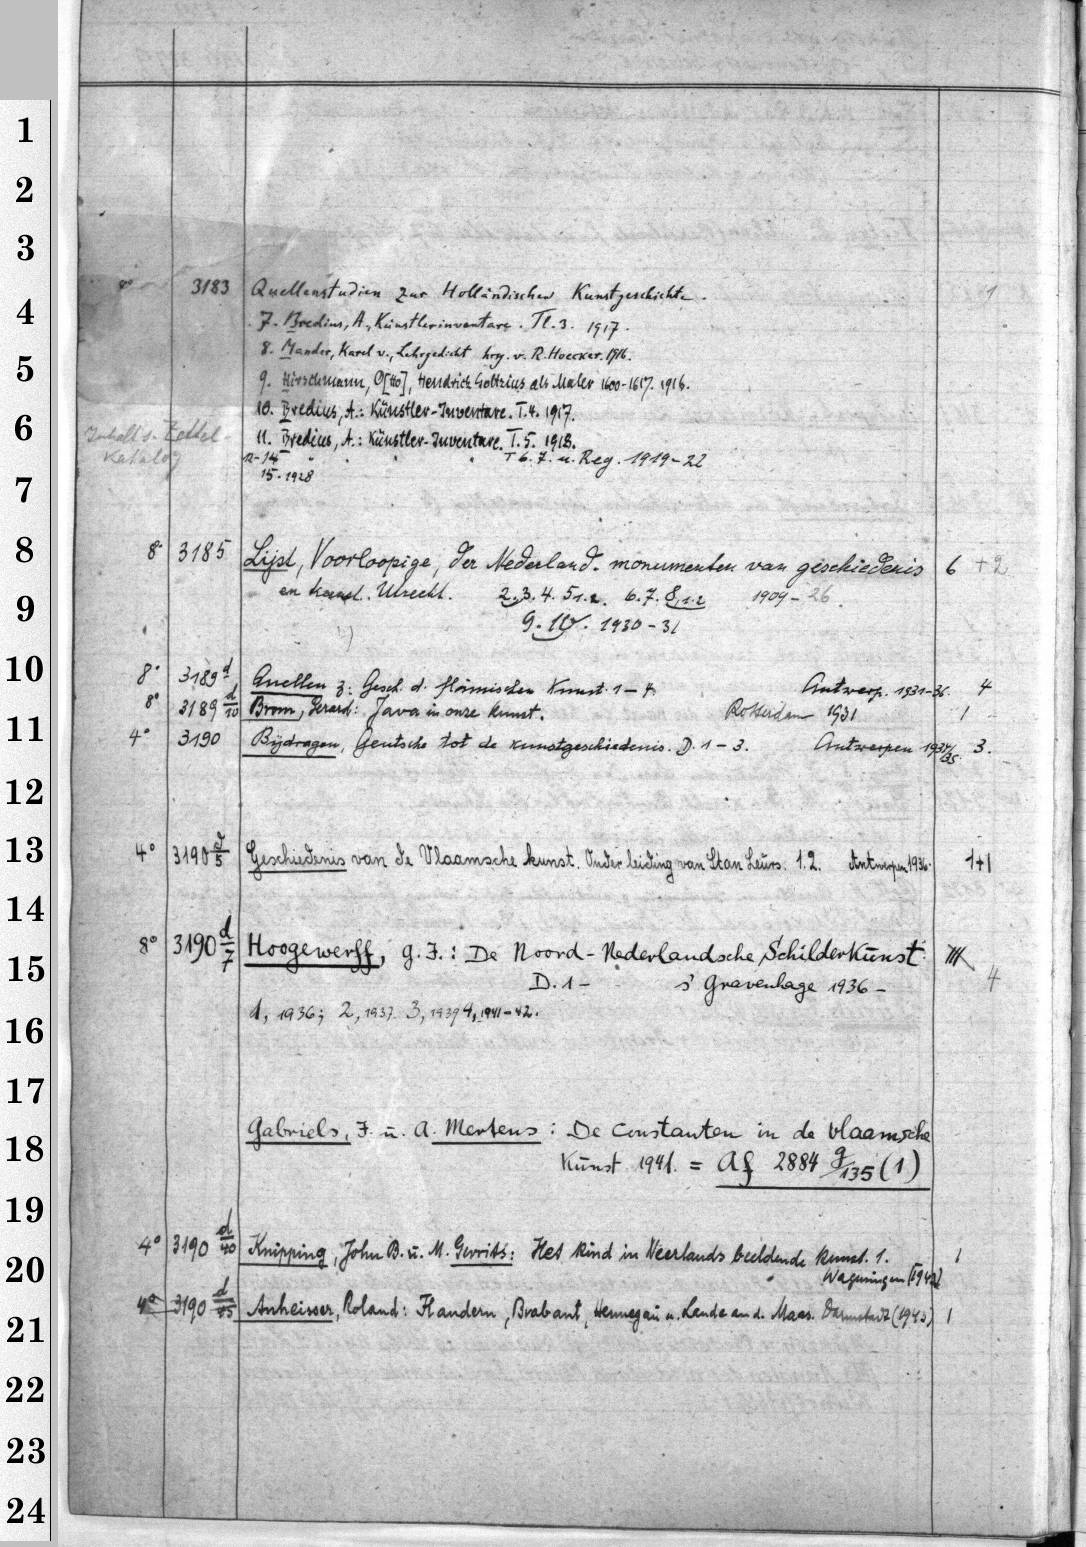 1
2
3
4
5
6
7
8
9
10
11
12
13
14
15
16
17
18
19
20
21
22
23
24
3183 Quellenstudien zur Holländischen Kunstgeschichte.
7. Bredius, A., Künstlerinventare. Tl. 3. 1917.
8. Mander, Karel v., Lehrgedicht hrg. v. R. Hoecker. 1916.
9. Hirschmann, O[tto], Hendrick Goltzius als Maler 1600-1617. 1916.
10. Bredius, A.: Künstler-Inventare. T. 4. 1917.
11. Bredius, A.: Künstler-Inventare. T. 5. 1918.
Inhalt s. Zettel-
Katalog
12-14 " " " T 6. 7. u. Reg. 1919-22
15. 1928
8° 3185 Lijst, Voorloopige, der Nederland. monumenten van geschiedenis 6 +2
en kunst. Utrecht. 2. 3. 4. 5 1.2. 6. 7. 8, 1.2 1909-26.
9. 10. 1930-31
8° 3189 d Quellen z. Gesch. d. flämischen Kunst. 1-4 Antwerp. 1931-36. 4
8° 3189 d/10 Brom, Gerard: Java in onze kunst. Rotterdam 1931 1
4° 3190 Bijdragen, Gentsche tot de kunstgeschiedenis. D. 1-3. Antwerpen 1934/35. 3.
4° 3190 d/5 Geschiedenis van de Vlaamsche kunst. Onder leiding van Stan Leurs. 1. 2. Antwerpen 1936- 1+1
8° 3190 d/7 Hoogewerff, G. J.: De Noord-Nederlandsche Schilderkunst.
D. 1- s' Gravenhage 1936- 4
1, 1936; 2, 1937. 3, 1939 4, 1941-42.
Gabriels, J. u. A. Mertens: De Constanten in de vlaamsche
Kunst 1941. = Af 2884 g/135 (1)
4° 3190 d/40 Knipping, John B. u. M. Gerrits: Het kind in Neerlands beeldende kunst. 1. 1
Wageningen [1942]
4° 3190 d/45 Anheisser, Roland: Flandern, Brabant, Hennegau u. Lande an d. Maas. Darmstadt (1943) 1